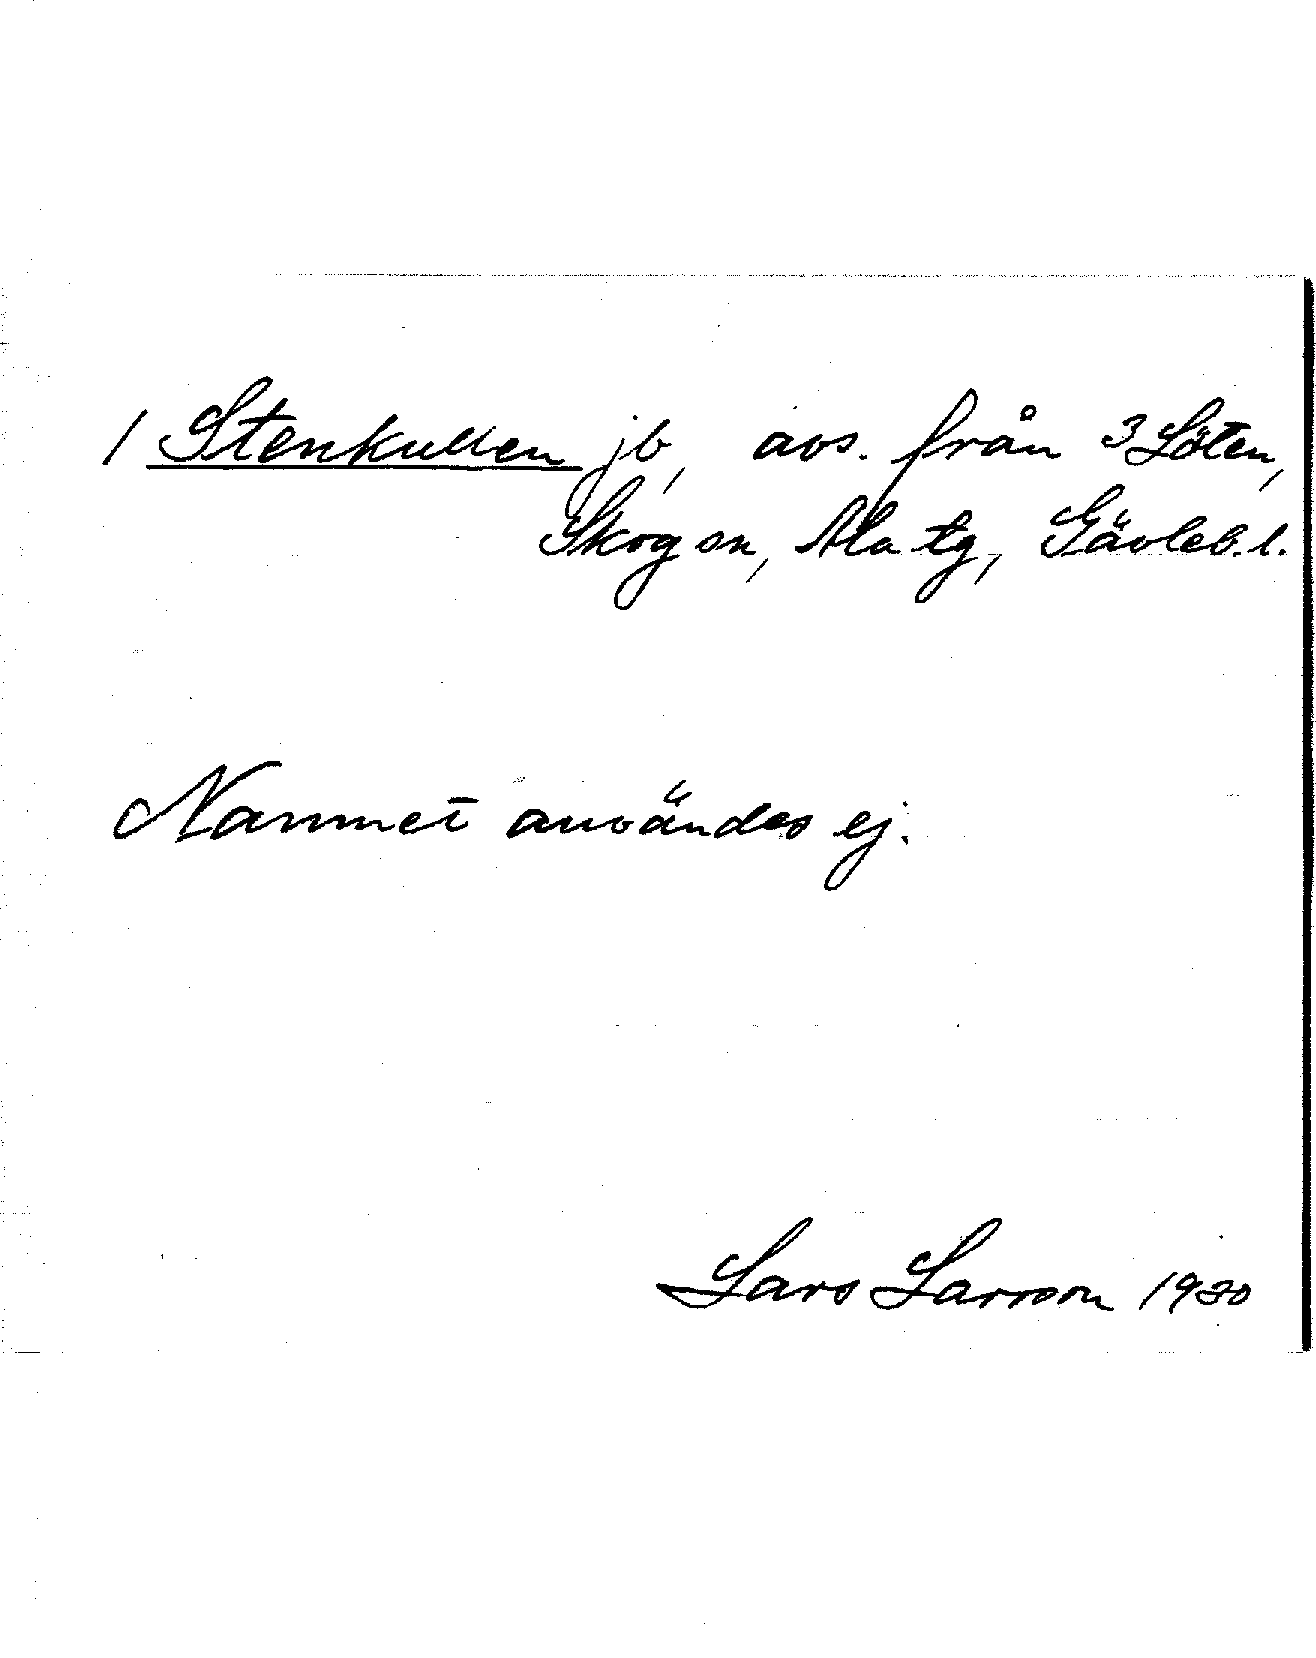 1 Stenkullen jb, avs. från 3 Löten,
Skog sn, Ala tg, Gävleb. l.
Namnet användes ej.
Lars Larsson 1930